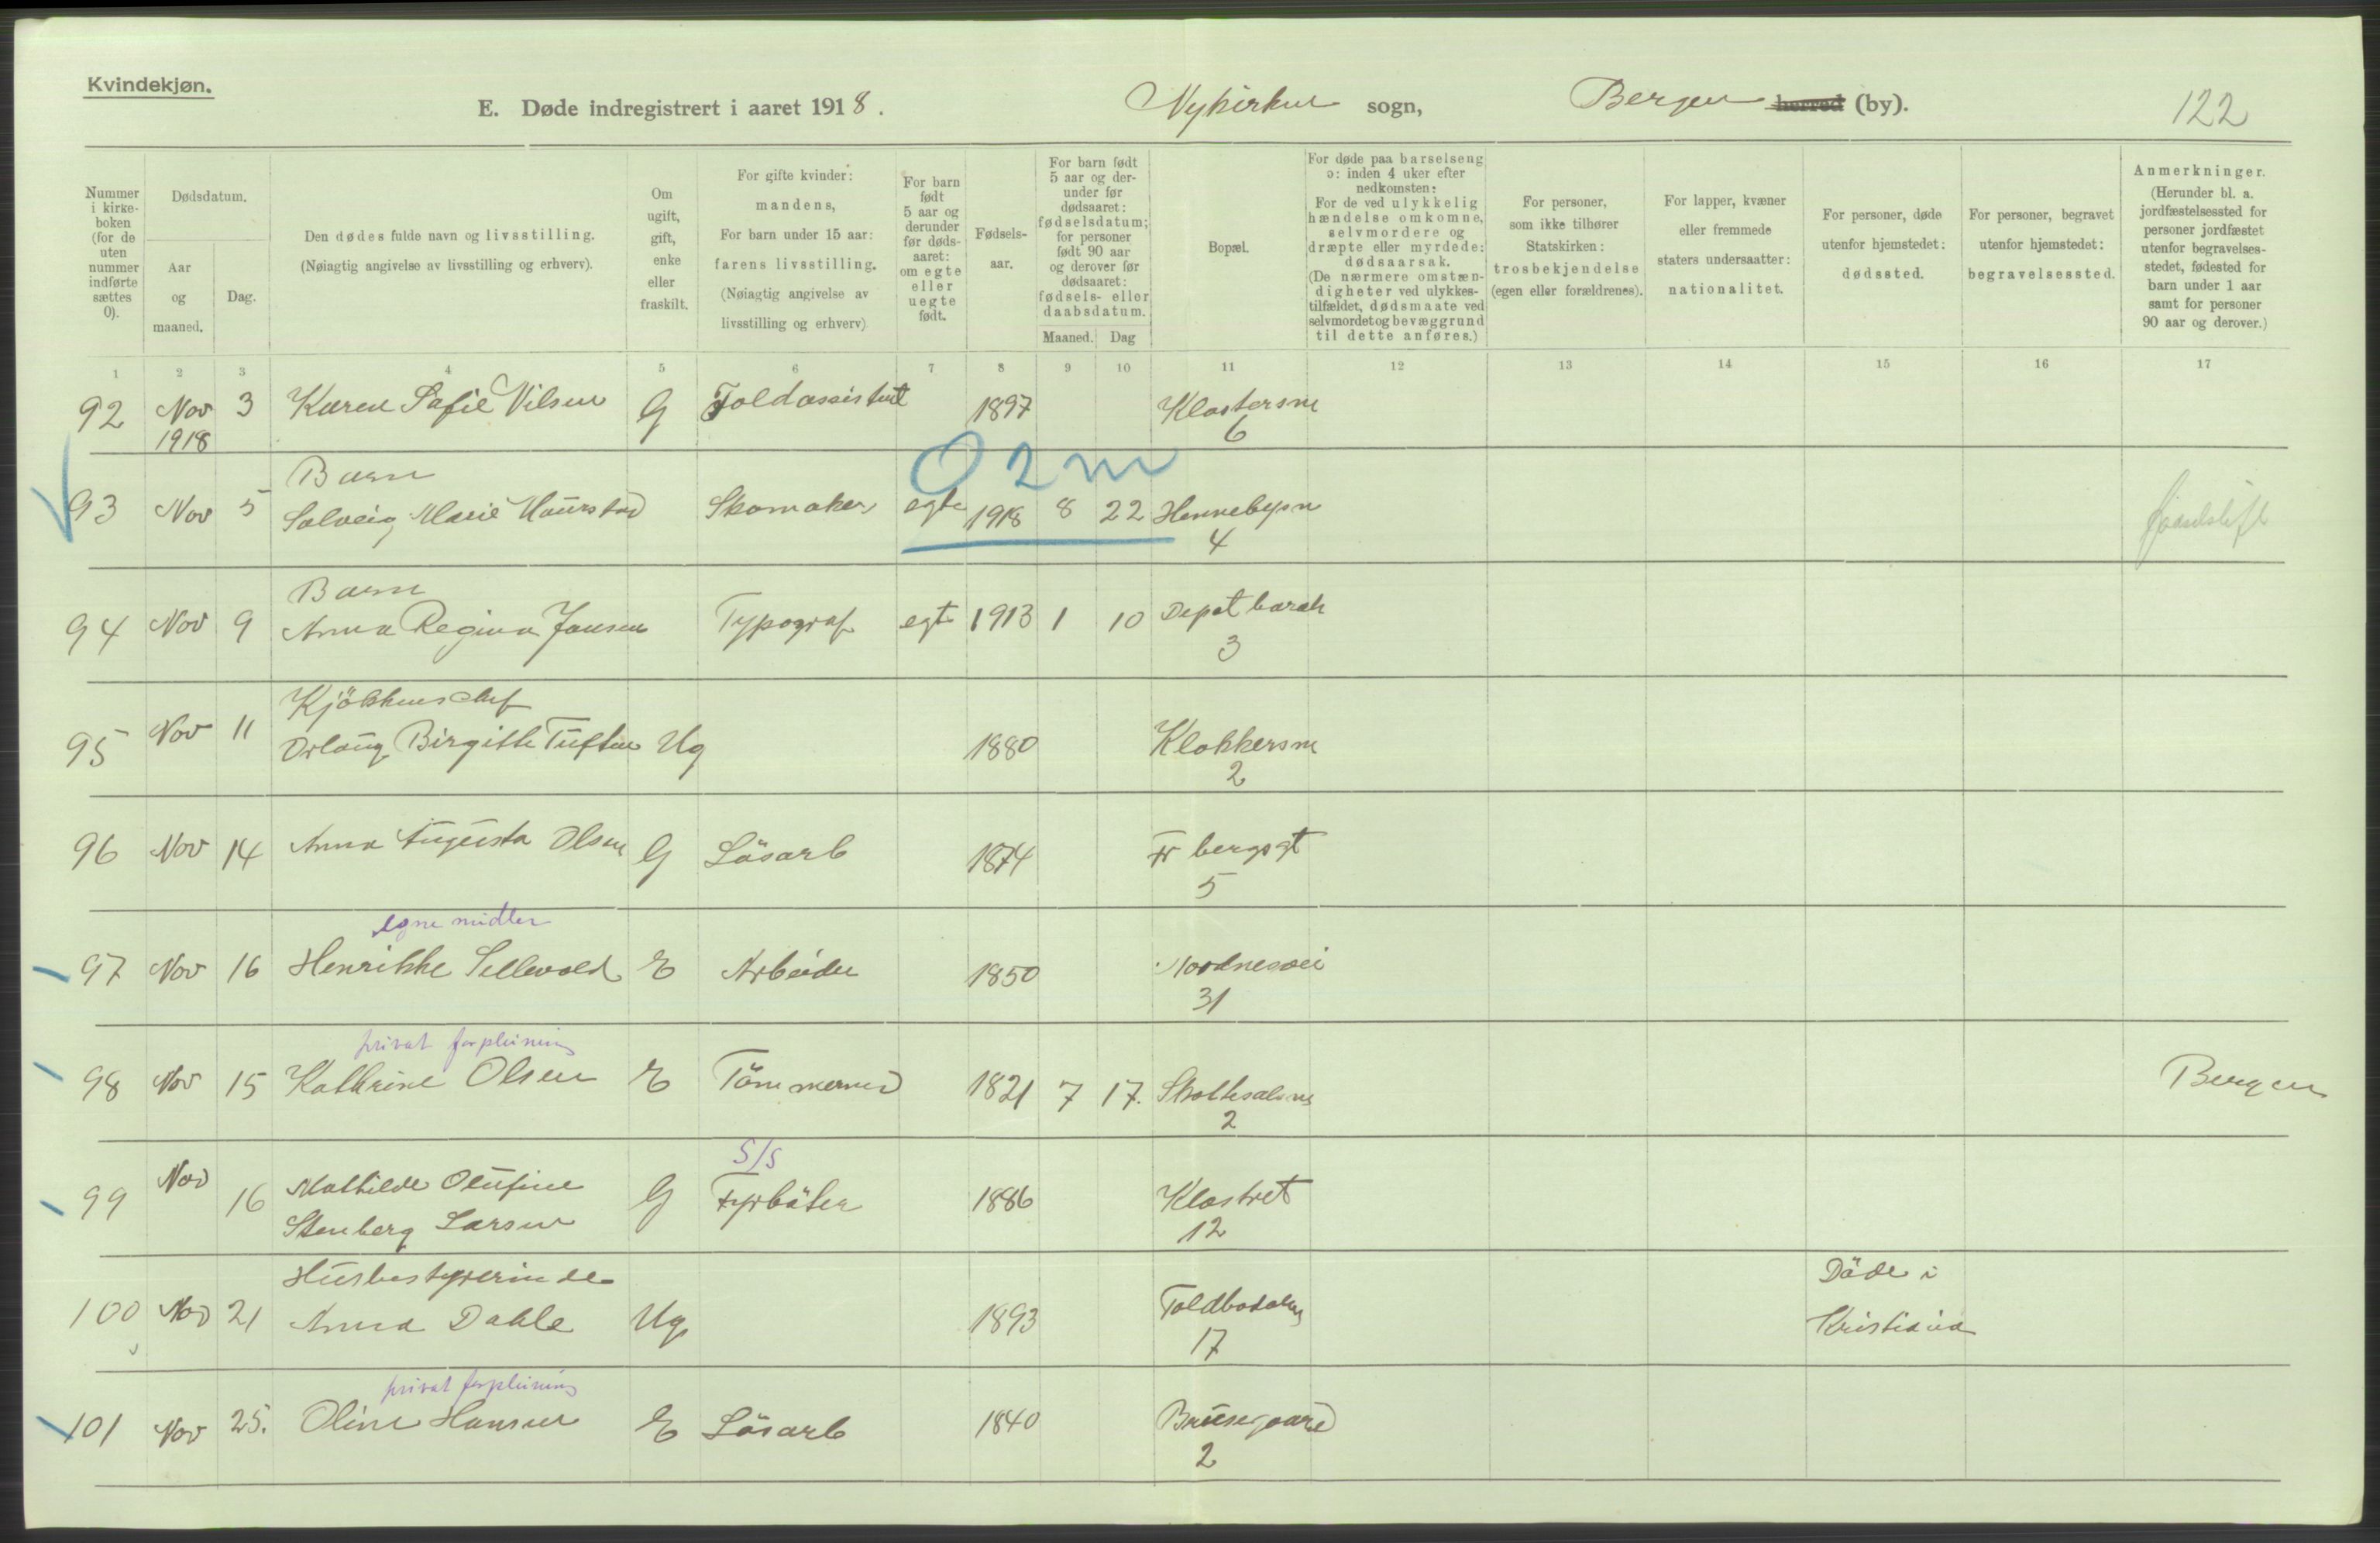 Kvindekjøn.
E. Døde indregistrert i aaret 1918.
Nykirken sogn,
Bergen herred (by).
122
Nummer i kirke-boken (for de uten nummer indførte sættes 0).
Dødsdatum.
Aar og maaned.
Dag.
Den dødes fulde navn og livsstilling.
(Nøiagtig angivelse av livsstilling og erhverv).
Om ugift, gift, enke eller fraskilt.
For gifte kvinder: mandens,
For barn under 15 aar: farens livsstilling.
(Nøiagtig angivelse av livsstilling og erhverv)
For barn født 5 aar og derunder før døds-aaret: om egte eller uegte født.
Fødsels-aar.
For barn født 5 aar og der-under før dødsaaret: fødselsdatum; for personer født 90 aar og derover før dødsaaret: fødsels- eller daabsdatum.
Maaned.
Dag
Bopæl.
For døde paa barselseng ɔ: inden 4 uker efter nedkomsten:
For de ved ulykkelig hændelse omkomne, selvmordere og dræpte eller myrdede: dødsaarsak.
(De nærmere omstæn-digheter ved ulykkes-tilfældet, dødsmaate ved selvmordet og bevæggrund til dette anføres.)
For personer, som ikke tilhører Statskirken: trosbekjendelse (egen eller forældrenes).
For lapper, kvæner eller fremmede staters undersaatter: nationalitet.
For personer, døde utenfor hjemstedet: dødssted.
For personer, begravet utenfor hjemstedet: begravelsessted.
Anmerkninger.
(Herunder bl. a. jordfæstelsessted for personer jordfæstet utenfor begravelses-stedet, fødested for barn under 1 aar samt for personer 90 aar og derover.)
1 2 3 4 5 6 7 8 9 10 11 12 13 14 15 16 17
92 Nov 3 Karen Sofie Nilsen G Toldassistent 1897 Klostersm
1918 6
0 2 m
Barn
93 Nov 5 Solveig Marie Maurstad Skomaker egte 1918 8 22 Hennebysm
4
Barn
94 Nov 9 Anna Regina Jansen Typograf egte 1913 1 10 Depotbarak
3
Kjökkenschef
95 Nov 11 Orlaug Birgitte Tuften Ug 1880 Klokkersm
2
96 Nov 14 Anna Augusta Olsen G Lösarb 1874 Fr bergsgt
5
egne midler
97 Nov 16 Henrikke Sellevold E Arbeider 1850 Nordnesvei
31
privat forpleining
98 Nov 15 Kathrine Olsen E Tömmermd 1821 7 17. Skottesalsm Bergen
2
S/S
99 Nov 16 Mathilde Olufine G Fyrböter 1886 Klostret
Stenberg Larsen 12
Husbestyrerinde
100 Nov 21 Anna Dahle Ug 1893 Toldbodalm Döde i
17 Kristiania
privat forpleining
101 Nov 25. Oline Hansen E Lösarb 1840 Brusegaard
2